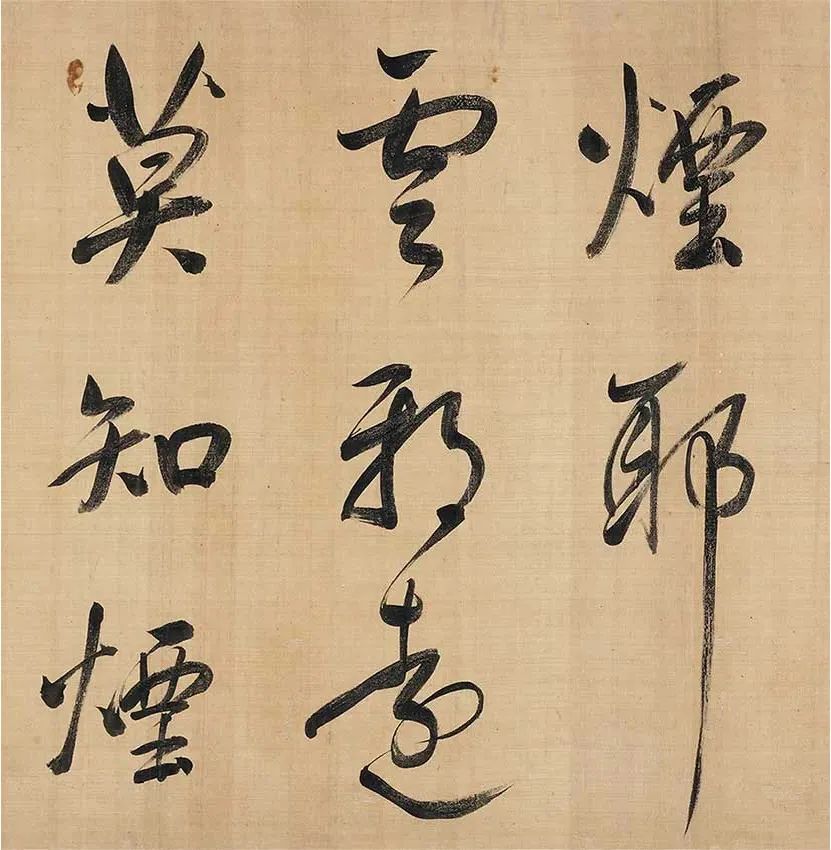 煙耶
雲耶遠
莫知煙